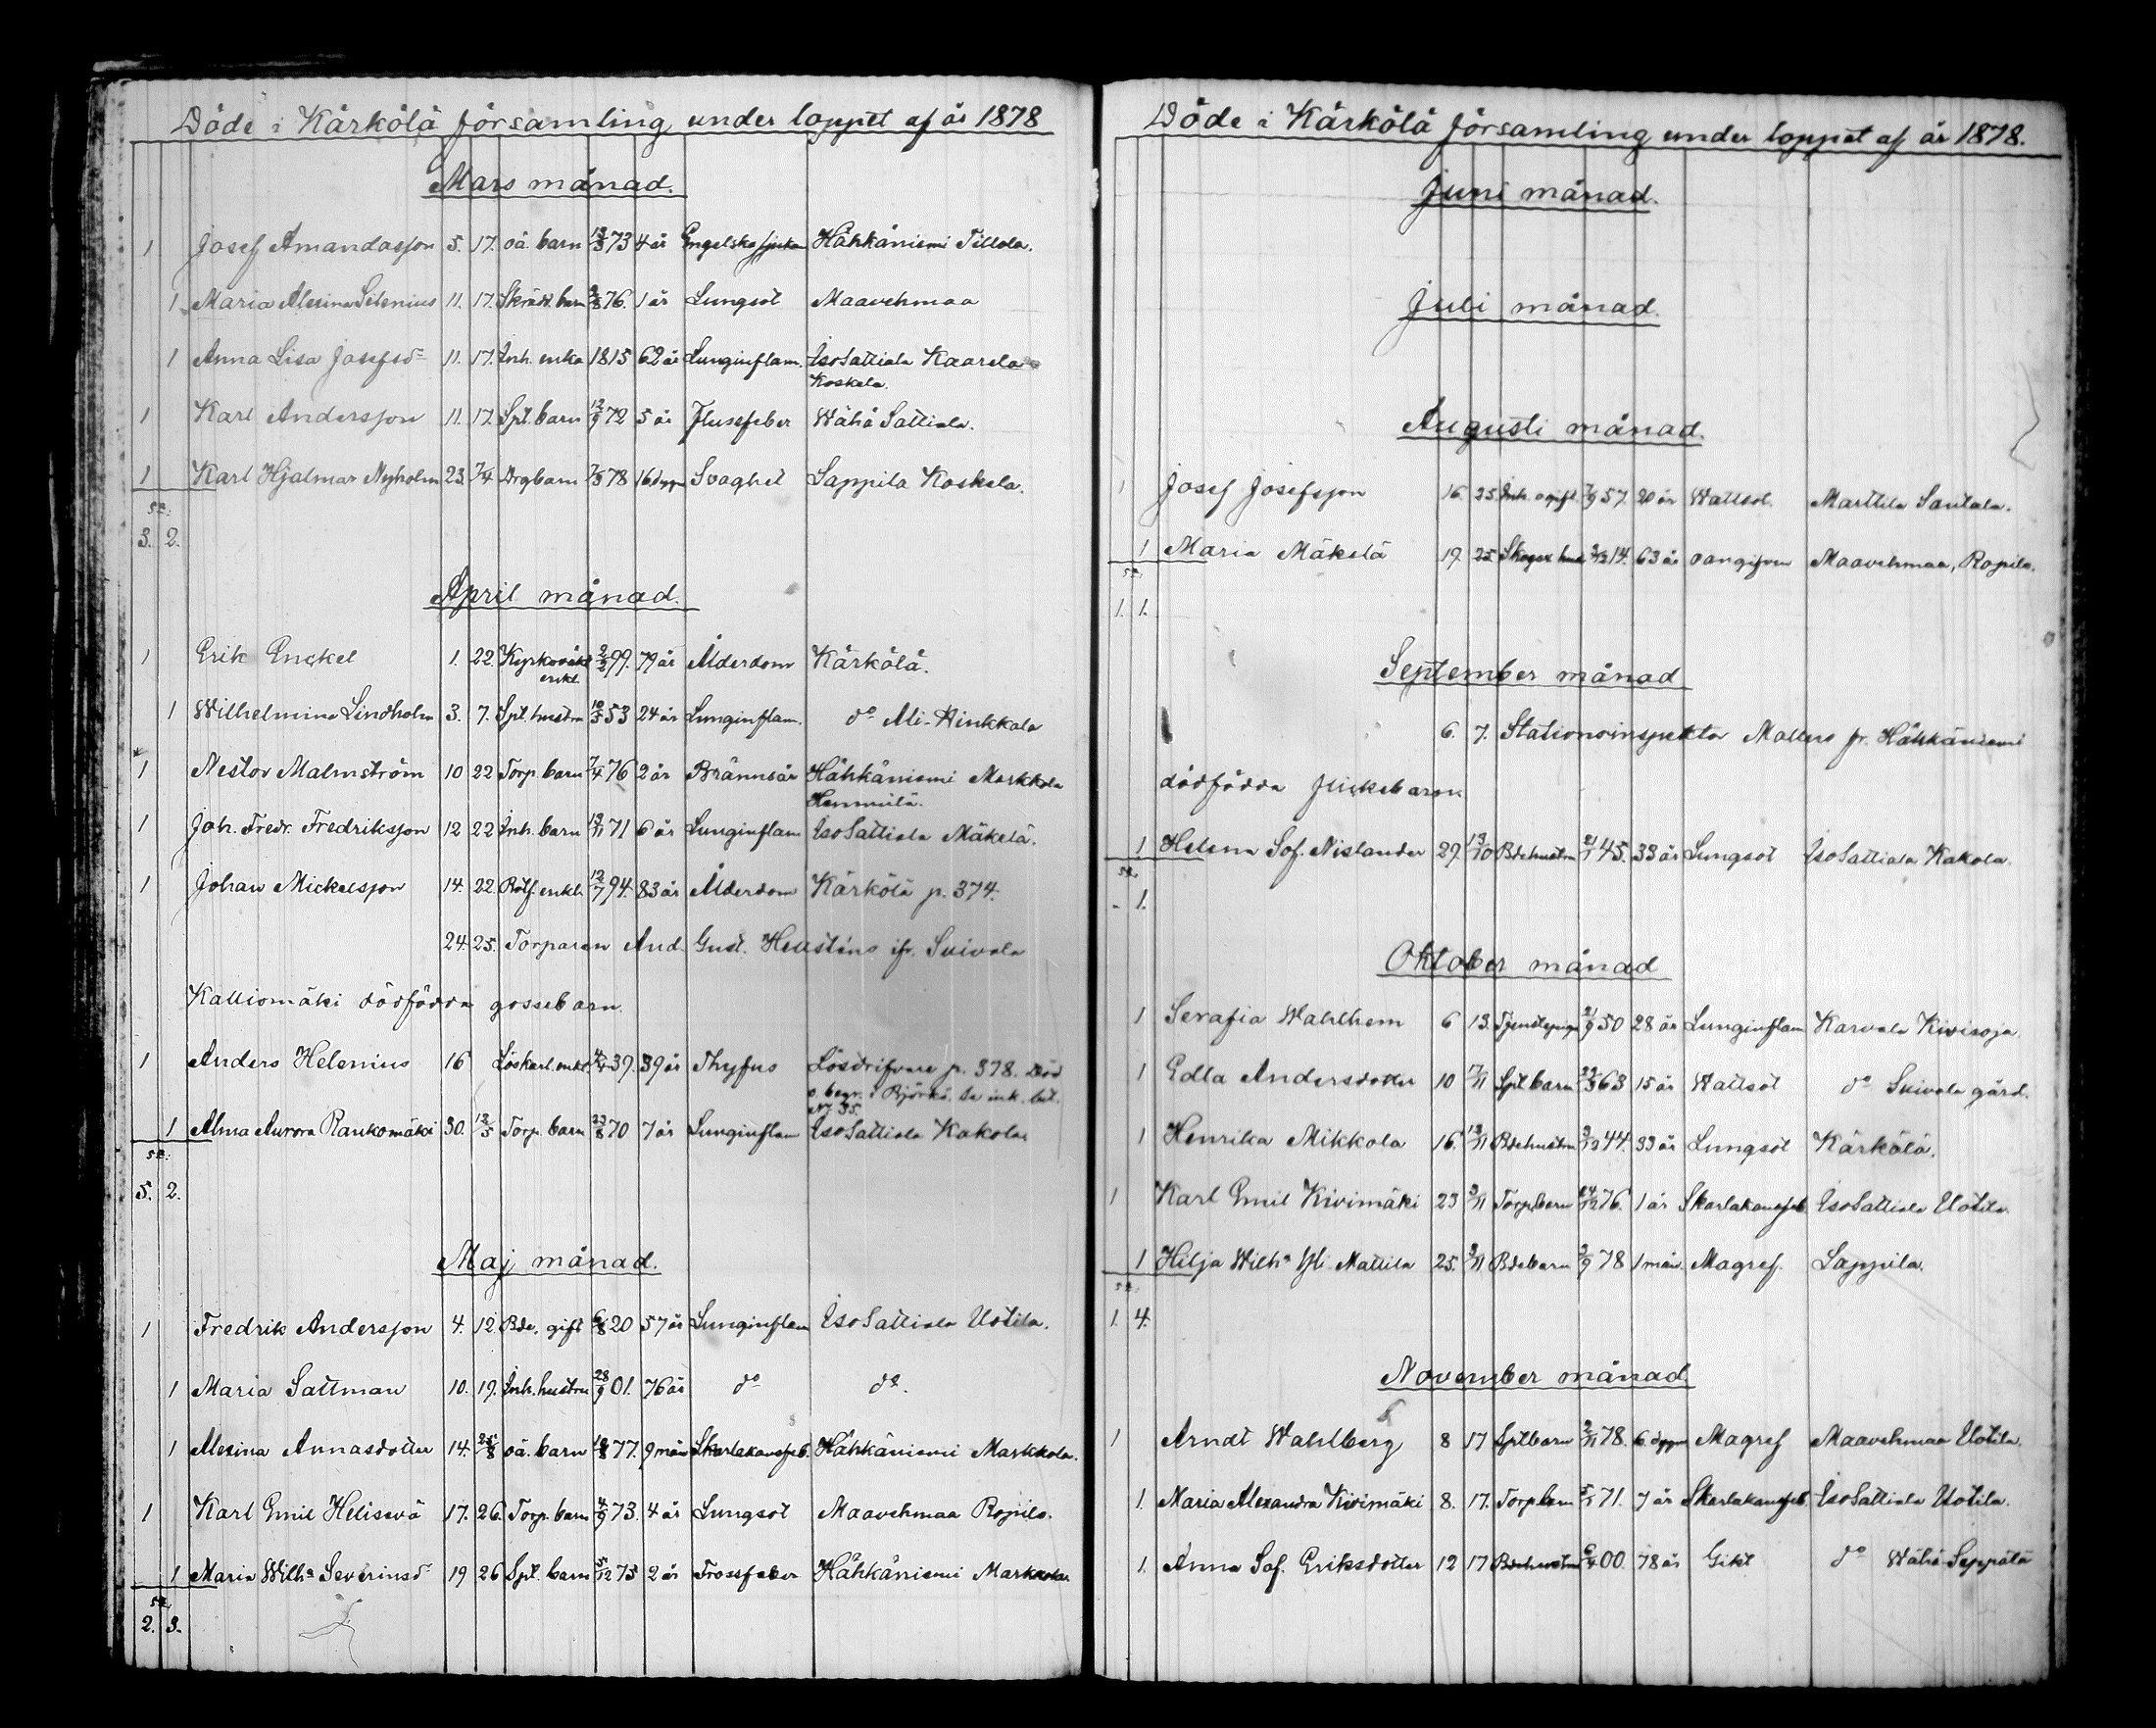 Döde i Kärkölä församling under loppet af år 1878
Mars månad.
1 Josef Amandasson 5. 17. oä. barn 13/3 73 4 år Engelska sjukan Hähkäniemi Tillola.
1 Maria Alexina Silenius 11. 17. Skräd. barn 76. 1 år Lungsot Maavehmaa
1 Anna Lisa Josefsd 11. 17. Inh. enka 1815 62 år Lunginflam. IsoSattiala Kaarela
Koskela.
1 Karl Andersson 11. 17. Spt. barn 12/9 72 5 år Flussfeber Wähä Sattiala.
1 Karl Hjalmar Nyholm 23. 7/4 Drgbarn 7/3 78 16 dygn Svaghet Lappila Koskela.
Sa:
3. 2.
April månad.
1 Erik Enckel 1. 22. Kyrkovakt 2/2 99. 79 år Ålderdom Kärkölä.
enkl.
1 Wilhelmina Lindholm 3. 7. Spt. hustru 53 24 år Lunginflam. do Ali-Hinkkala
1 Nestor Malmström 10 22 Torp. barn 7/4 76 2 år Brännsår Hähkäniemi Markkola
Hemmilä.
1 Joh. Fredr. Fredriksson 12 22 Inh. barn 12/11 71 6 år Lunginflam IsoSattiala Mäkelä.
1 Johan Mickelsson 14. 22. Rotf. enkl. 12/7 94. 83 år Ålderdom Kärkölä p. 374.
24. 25. Torparen And. Gust. Hellsténs fr. Suivala
Kalliomäki dödfödda gossebarn.
1 Anders Helenius 16 Löskarl. enkl. 4/4 39. 39 år Thyfus Lösdrifvare p. 378. Död
o. begr. i Björkö. Se ink. bet.
No 35.
1 Alma Aurora Raukomäki 30. 12/5 Torp. barn 23/8 70 7 år Lunginflam IsoSattiala Kakola
Sa:
5. 2.
Maj månad.
1 Fredrik Andersson 4. 12. Bde, gift 6/8 20 57 år Lunginflam IsoSattiala Uotila.
1 Maria Sattman 10. 19. Inh. hustru 28/9 01. 76 år do do.
1 Alexina Annasdotter 14. oä. barn 77. 9 mån Skarlakansfeb. Hähkäniemi Markkola.
1 Karl Emil Helisevä 17. 26. Torp. barn 4/9 73. 4 år Lungsot Maavehmaa Ropila.
1 Maria Wilha Severinsd 19 26 Spt. barn 5/12 75 2 år Frossfeber Hähkäniemi Markkola
Sa.
2. 3.
Döde i Kärkölä församling under loppet af år 1878.
Juni månad.
Juli månad.
Augusti månad.
1 Josef Josefsson 16. 25. Inh. ogift. 7/9 57. 20 år Wattsot. Marttila Santala.
1 Maria Mäkelä 19. 25. 14. 63 år oangifven Maavehmaa, Ropila.
Sa.
1. 1.
September månad
6. 7. Stationsinspektor Mallers fr. Hähkäniemi
dödfödda flickebarn.
1 Helena Sof. Nislander 29. 13/10 Bdehustru 21/1 45. 33 år Lungsot IsoSattiala Kakola.
Sa.
- 1.
Oktober månad
1 Serafia Wahlhem 6 13. Tjenstepiga 21/9 50 28 år Lunginflam Karvala Kivisoja.
1 Edla Andersdotter 10 17/11 Spt. barn 22/3 63 15 år Wattsot do Suivala gård.
1 Henrika Mikkola 16. 13/11 Bdehustru 3/12 44. 33 år Lungsot Kärkölä.
1 Karl Emil Kivimäki 23 3/11 Torp. barn 24/12 76. 1 år Skarlakansfeb. IsoSattiala Uotila.
1 Hilja Wilha Yli-Mattila 25. 3/11 Bdebarn 2/9 78 1 mån. Magref. Lappila.
Sa.
1. 4.
November månad
1 Arndt Wahlberg 8 17 Sptbarn 2/11 78. 6. dygn Magref Maavehmaa Uotila.
1. Maria Alexandra Kivimäki 8. 17. Torp. barn 5/1 71. 7 år Skarlakansfeb. IsoSattiala Uotila.
1. Anna Sof. Eriksdotter 12 17 Bdehustru 00. 78 år Gikt do Wähä Seppälä